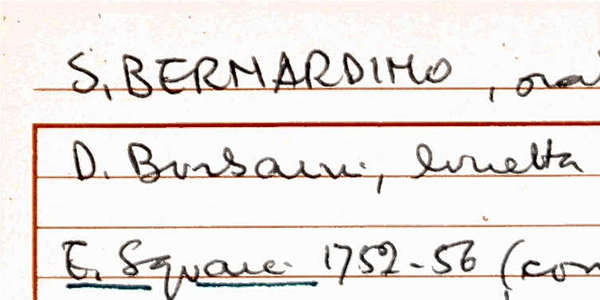 S. BERNARDINO, ora
D. Bursauni, lunetta
E. Squarci 1752-56 (con